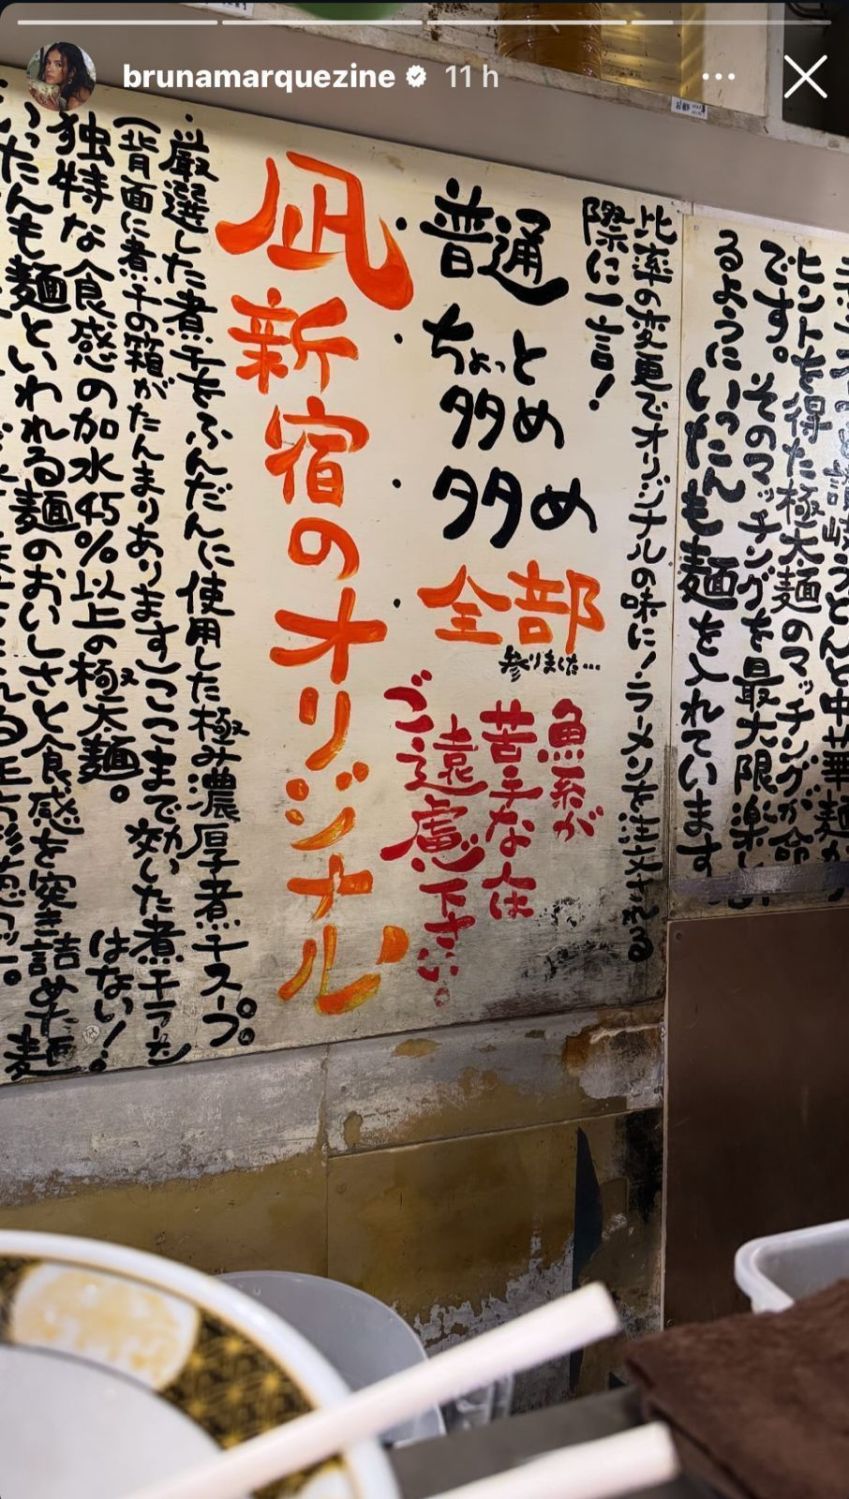 brunamarquezine 11 h
ヒントを得た極太麺のマッチングが命
です。そのマッチングを最大限楽し
るようにいったんも麺を入れています
比率の変更でオリジナルの味に!ラーメンを注文される
際に一言!
・普通
・ちょっと
多め
・多め
・全部
参りました…
魚系が
苦手な人は
ご遠慮下さい。
凪 新宿のオリジナル
・厳選した煮干をふんだんに使用した極み濃厚煮干スープ。
(背面に煮干の箱がたんまりあります)ここまで効いた煮干ラーメン
はない!
独特な食感の加水45%以上の極太麺。
いったんも麺といわれる麺のおいしさと食感を突き詰めた麺